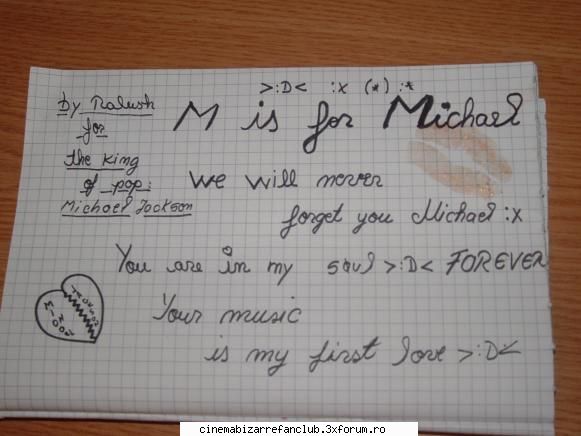 by Ralush
for
the king
of pop:
Michael Jackson
>:D< :x (*) :*
M is for Michael
we will never
forget you Michael :x
You are in my soul >:D< FOREVER
Your music
is my first love >:D<
cinemabizarrefanclub.3xforum.ro